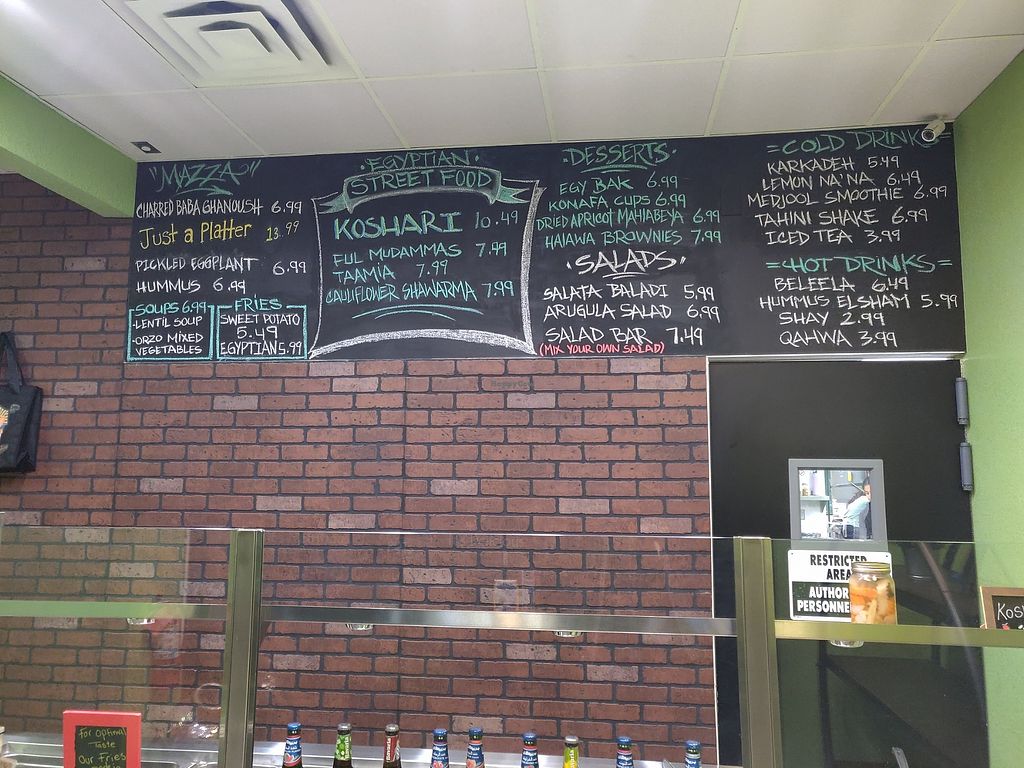 "MAZZA"
CHARRED BABA GHANOUSH 6.99
Just a Platter 13.99
PICKLED EGGPLANT 6.99
HUMMUS 6.99
SOUPS 6.99
-LENTIL SOUP
-ORZO MIXED
VEGETABLES
FRIES
SWEET POTATO
5.49
EGYPTIAN 5.99
·EGYPTIAN·
STREET FOOD
KOSHARI 10.49
FUL MUDAMMAS 7.99
TAAMIA 7.99
CAULIFLOWER SHAWARMA 7.99
DESSERTS·
EGY BAK 6.99
KONAFA CUPS 6.99
DRIED APRICOT MAHLABEYA 6.99
HALAWA BROWNIES 7.99
·SALADS·
SALATA BALADI 5.99
ARUGULA SALAD 6.99
SALAD BAR 7.49
(MIX YOUR OWN SALAD)
=COLD DRINK
KARKADEH 5.49
LEMON NA'NA 6.49
MEDJOOL SMOOTHIE 6.99
TAHINI SHAKE 6.99
ICED TEA 3.99
=HOT DRINKS=
BELEELA 6.49
HUMMUS ELSHAM 5.99
SHAY 2.99
QAHWA 3.99
HappyCow
RESTRICTED
AREA
AUTHOR
PERSONNE
For Optimal
Taste
Our Fries